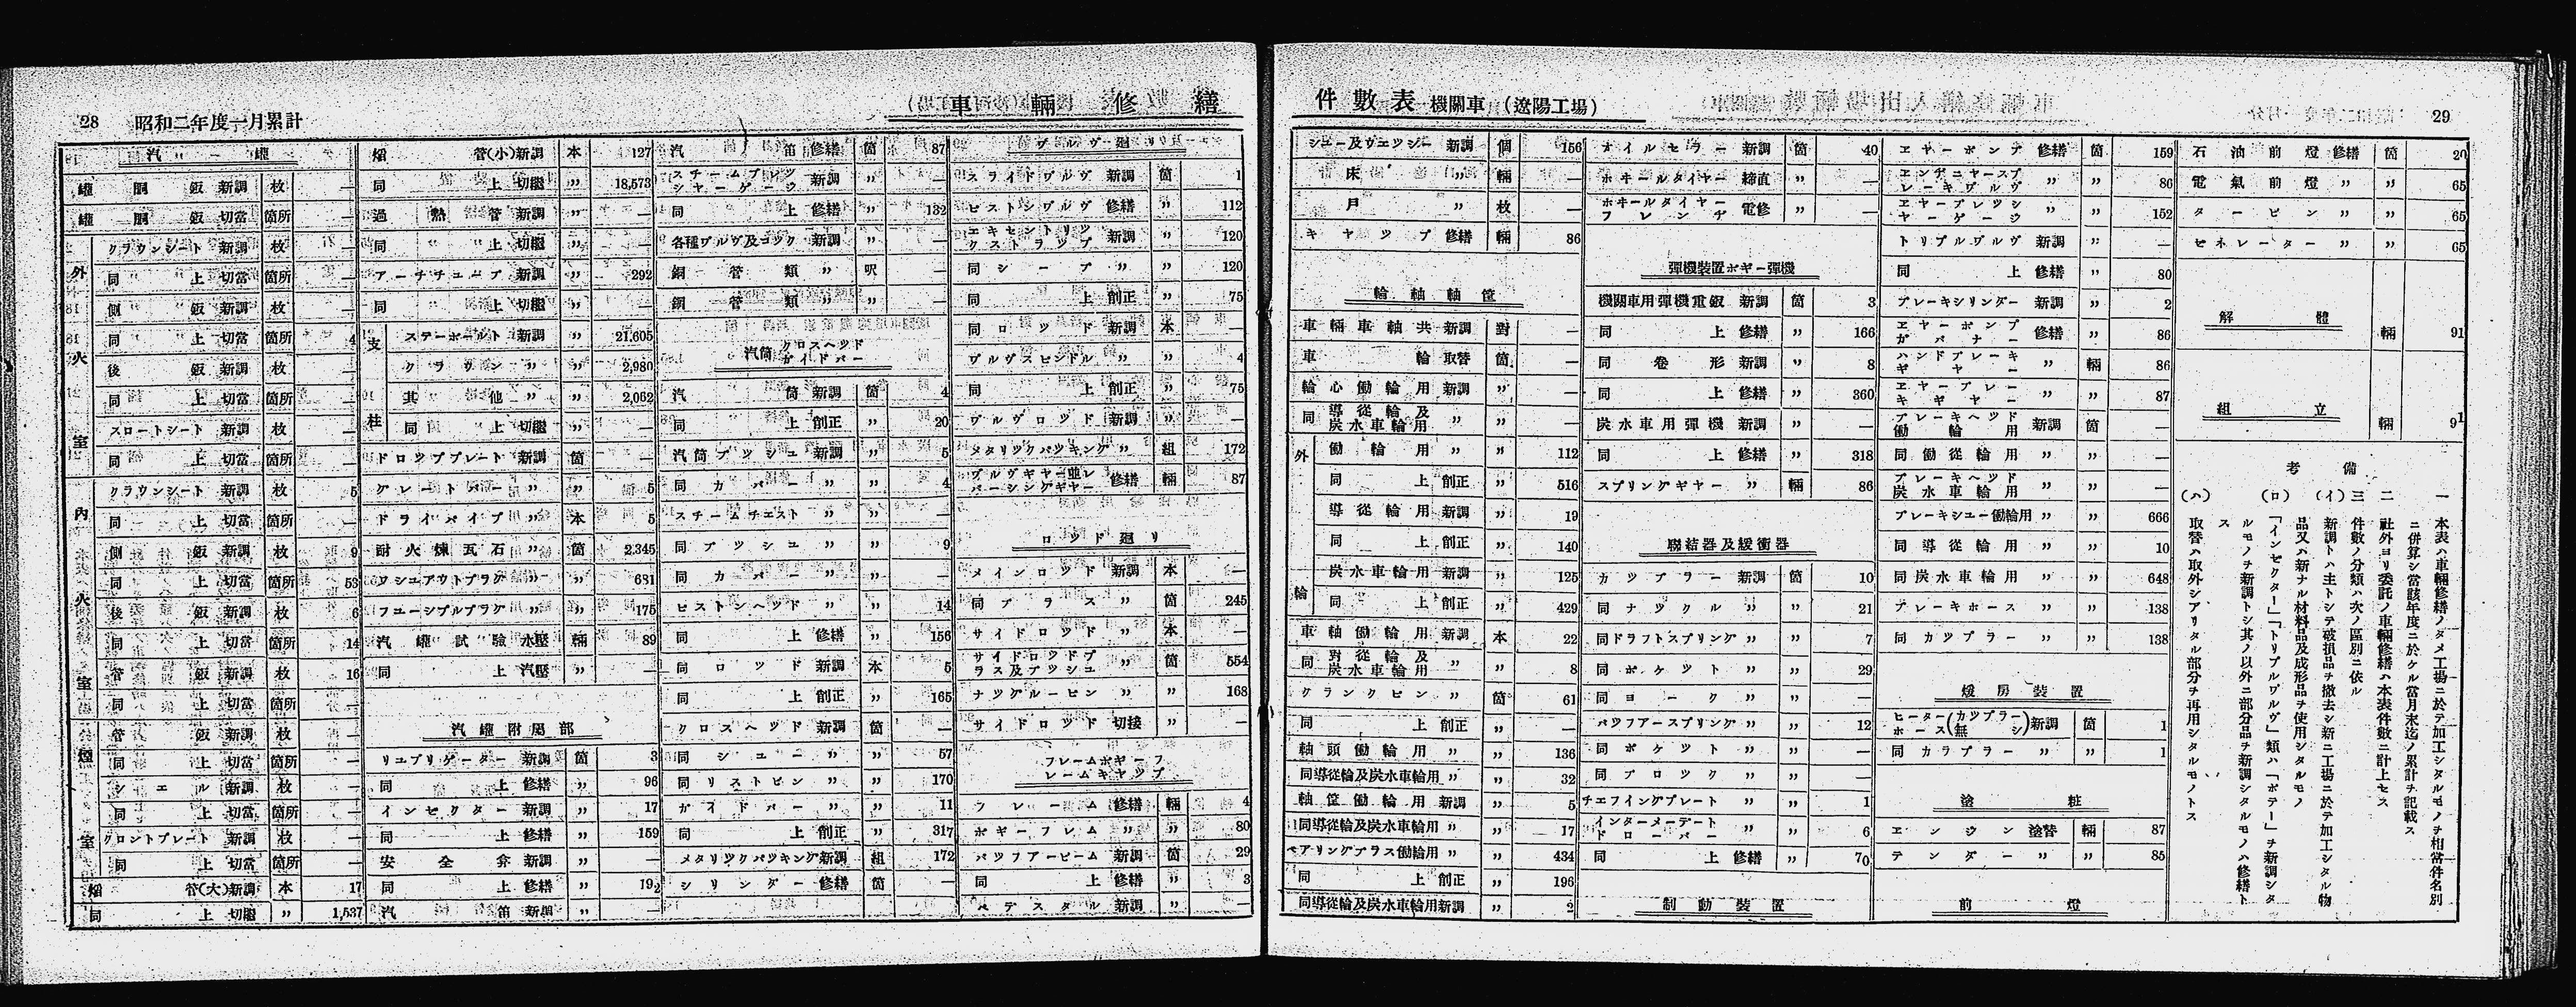 28 昭和二年度一月累計
車輛修繕件數表 機關車 (遼陽工場)
29
汽罐
罐胴鈑 新調 枚 —
罐胴鈑 切當 箇所 —
外火室
クラウンシート 新調 枚 —
同上 切當 箇所 —
側鈑 新調 枚 —
同上 切當 箇所 4
後鈑 新調 枚 —
同上 切當 箇所 —
スロートシート 新調 枚 —
同上 切當 箇所 —
內火室
クラウンシート 新調 枚 5
同上 切當 箇所 —
側鈑 新調 枚 9
同上 切當 箇所 53
後鈑 新調 枚 6
同上 切當 箇所 14
管鈑 新調 枚 16
同上 切當 箇所 —
煙室
管鈑 新調 枚 —
同上 切當 箇所 —
シエル 新調 枚 —
同上 切當 箇所 —
フロントプレート 新調 枚 —
同上 切當 箇所 —
焔管(大) 新調 本 17
同上 切繼 〃 1,537
焔管(小) 新調 本 127
同上 切繼 〃 18,573
過熱管 新調 〃 —
同上 切繼 〃 —
アーチチユーブ 新調 〃 292
同上 切繼 〃 —
支柱
ステーボールト 新調 〃 21,605
クラウン 〃 〃 2,980
其他 〃 〃 2,062
同上 切繼 〃 —
ドロツププレート 新調 箇 —
グレートバー 〃 〃 5
ドライパイプ 〃 本 5
耐火煉瓦石 〃 箇 2,345
ワシユアウトプラグ 〃 〃 631
フユーシブルプラグ 〃 〃 175
汽罐試驗 水壓 輛 89
同上 汽壓 〃 —
汽罐附屬部
リユブリゲーター 新調 箇 3
同上 修繕 〃 96
インゼクター 新調 〃 17
同上 修繕 〃 159
安全弁 新調 〃 —
同上 修繕 〃 192
汽笛 新調 〃 —
汽笛 修繕 箇 87
スチームプレツシヤーゲージ 新調 〃 —
同上 修繕 〃 132
各種ヴルヴ及コツク 新調 〃 —
銅管類 〃 呎 —
鋼管類 〃 〃 —
汽筒 クロスヘツド ガイドバー
汽筒 新調 箇 4
同上 創正 〃 20
汽筒ブツシユ 新調 〃 5
同カバー 〃 〃 4
スチームチエスト 〃 〃 —
同ブツシユ 〃 〃 9
同カバー 〃 〃 —
ピストンヘツド 〃 〃 14
同上 修繕 〃 156
同ロツド 新調 本 5
同上 創正 〃 165
クロスヘツド 新調 箇 —
同シユー 〃 〃 57
同リストピン 〃 〃 170
ガイドバー 〃 〃 11
同上 創正 〃 317
メタリツクパツキング 新調 組 172
シリンダー 修繕 箇 —
ヴルヴ廻リ
スライドヴルヴ 新調 箇 1
ピストンヴルヴ 修繕 〃 112
エキセントリツクストラツプ 新調 〃 120
同シーブ 〃 〃 120
同上 創正 〃 75
同ロツド 新調 本 —
ヴルヴスピンドル 〃 〃 4
同上 創正 〃 75
ヴルヴロツド 新調 〃 —
メタリツクパツキング 〃 組 172
ヴルヴギヤー並レバーシングギヤー 修繕 輛 87
ロツド廻リ
メインロツド 新調 本 —
同ブラス 〃 箇 245
サイドロツド 〃 本 —
サイドロツドブラス及ブツシユ 〃 箇 554
ナツクルーピン 〃 〃 168
サイドロツド 切接 〃 —
フレームボギーフレームキヤツブ
フレーム 修繕 輛 4
ボギーフレム 〃 〃 80
バツフアービーム 新調 箇 29
同上 修繕 〃 3
ペデスタル 新調 〃 —
シユー及ウエツジー 新調 個 156
床 〃 輛 —
戸 〃 枚 —
キヤツブ 修繕 輛 86
輪軸軸筐
車輛車軸共 新調 對 —
車輪 取替 箇 —
輪心働輪用 新調 〃 —
同導從輪及炭水車輪用 〃 〃 —
外輪
働輪用 〃 〃 112
同上 創正 〃 516
導從輪用 新調 〃 19
同上 創正 〃 140
炭水車輪用 新調 〃 125
同上 創正 〃 429
車軸働輪用 新調 本 22
同對從輪及炭水車輪用 〃 〃 8
クランクピン 〃 箇 61
同上 創正 〃 —
軸頭働輪用 〃 〃 136
同導從輪及炭水車輪用 〃 〃 32
軸筐働輪用 新調 〃 5
同導從輪及炭水車輪用 〃 〃 17
ベアリングブラス働輪用 〃 〃 434
同上 創正 〃 196
同導從輪及炭水車輪用 新調 〃 2
オイルセラー 新調 箇 40
ホキールタイヤー 締直 〃 —
ホキールタイヤーフレンヂ 電修 〃 —
彈機裝置ボギー彈機
機關車用彈機重鈑 新調 箇 3
同上 修繕 〃 166
同卷形 新調 〃 8
同上 修繕 〃 360
炭水車用彈機 新調 〃 —
同上 修繕 〃 318
スプリングギヤー 〃 輛 86
聯結器及緩衝器
カツプラー 新調 箇 10
同ナツクル 〃 〃 21
同ドラフトスプリング 〃 〃 7
同ポケツト 〃 〃 29
同ヨーク 〃 〃 —
バツフアースプリング 〃 〃 12
同ポケツト 〃 〃 —
同ブロツク 〃 〃 —
チエフイングプレート 〃 〃 1
インターメーデートドローバー 〃 〃 6
同上 修繕 〃 70
制動裝置
ヱヤーポンプ 修繕 箇 159
ヱンヂニヤースブレーキヴルヴ 〃 〃 86
ヱヤープレツシヤーゲージ 〃 〃 152
トリプルヴルヴ 新調 〃 —
同上 修繕 〃 80
ブレーキシリンダー 新調 〃 2
ヱヤーポンプガバナー 修繕 〃 86
ハンドブレーキギヤー 〃 輛 86
ヱヤーブレーキギヤー 〃 〃 87
ブレーキヘツド働輪用 新調 箇 —
同働從輪用 〃 〃 —
ブレーキヘツド炭水車輪用 〃 〃 —
ブレーキシユー働輪用 〃 〃 666
同導從輪用 〃 〃 10
同炭水車輪用 〃 〃 648
ブレーキホース 〃 〃 138
同カツプラー 〃 〃 138
煖房裝置
ヒーターホース(カツプラー無シ) 新調 箇 1
同カラプラー 〃 〃 1
塗粧
ヱンジン 塗替 輛 87
テンダー 〃 〃 85
前燈
石油前燈 修繕 箇 20
電氣前燈 〃 〃 65
タービン 〃 〃 65
ゼネレーター 〃 〃 65
解體 輛 91
組立 輛 91
備考
一 本表ハ車輛修繕ノタメ工場ニ於テ加工シタルモノヲ相當件名別ニ併算シ當該年度ニ於ケル當月末迄ノ累計ヲ記載ス
二 社外ヨリ委託ノ車輛修繕ハ本表件數ニ計上セス
三 件數ノ分類ハ次ノ區別ニ依ル
(イ) 新調トハ主トシテ破損品ヲ撤去シ新ニ工場ニ於テ加工シタル物品又ハ新ナル材料品及成形品ヲ使用シタルモノ
(ロ) 「インゼクター」「トリプルヴルヴ」類ハ「ボデー」ヲ新調シタルモノヲ新調トシ其ノ以外ニ部分品ヲ新調シタルモノハ修繕トス
(ハ) 取替ハ取外シアリタル部分ヲ再用シタルモノトス